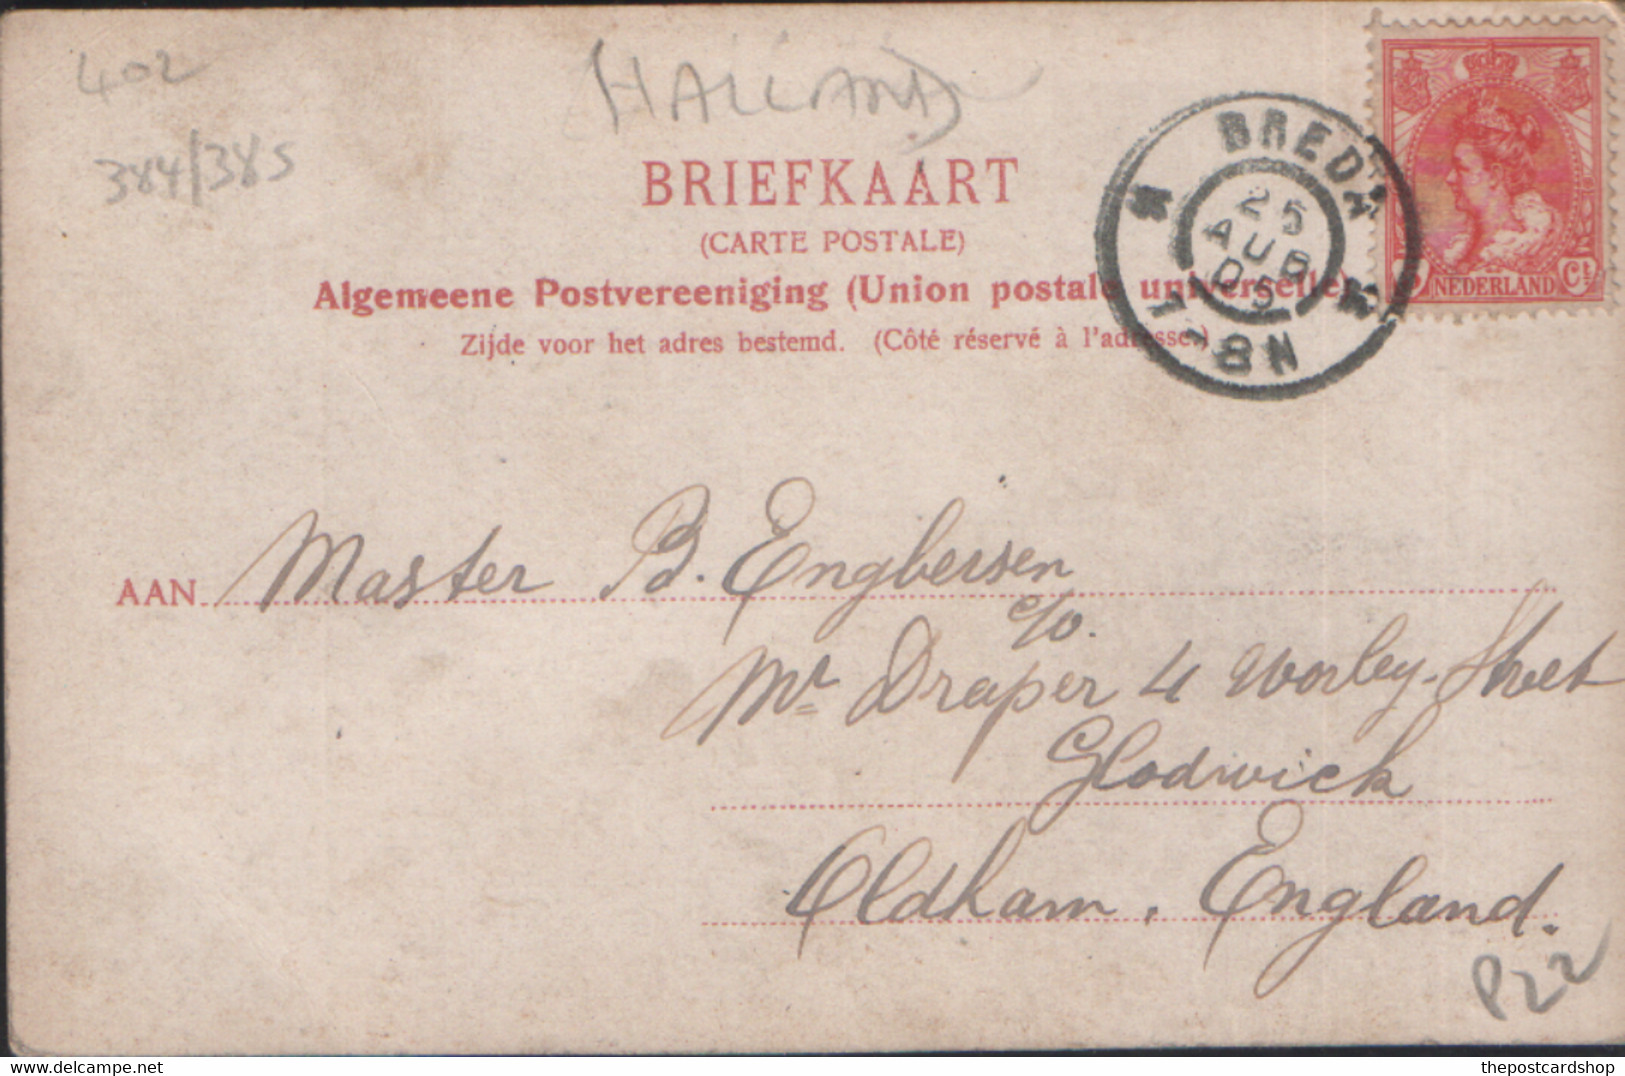 402
384/385
HALLAND
BRIEFKAART
(CARTE POSTALE)
Algemeene Postvereeniging (Union postale universelle)
Zijde voor het adres bestemd. (Côté réservé à l'adresse.)
BREDA
25
AUG
05
7-8N
5 NEDERLAND Ct
AAN Master B. Engbersen
c/o.
Mr Draper 4 Worley-Street
Glodwick
Oldham. England.
P22
thepostcardshop